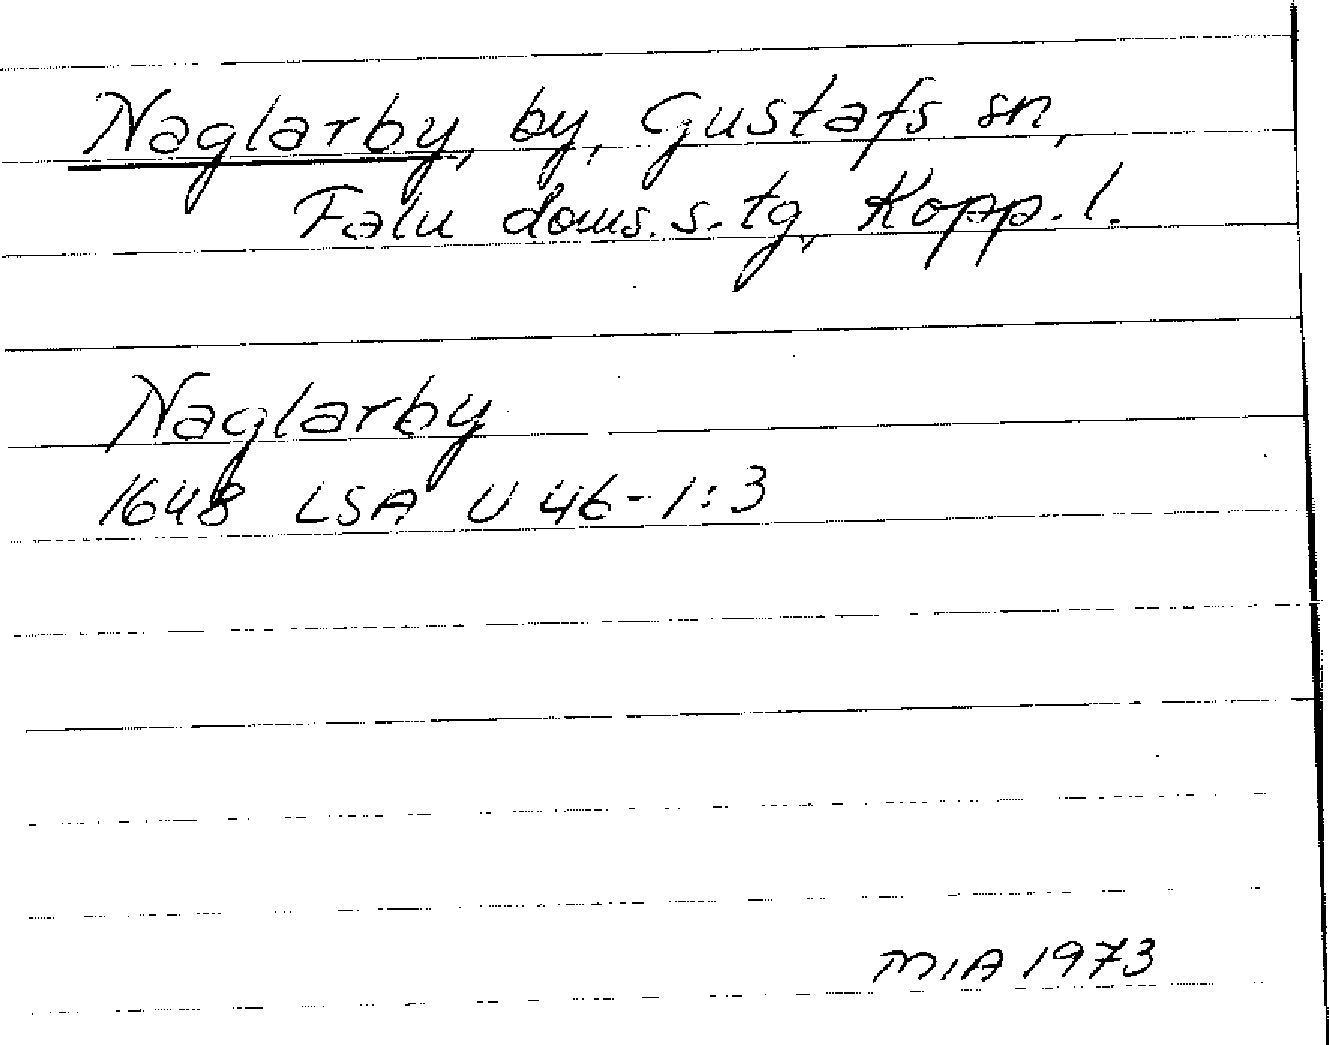 Naglarby, by, Gustafs sn,
Falu doms. s. tg, Kopp. l.
Naglarby
1648 LSA U 46-1:3
MIA 1973